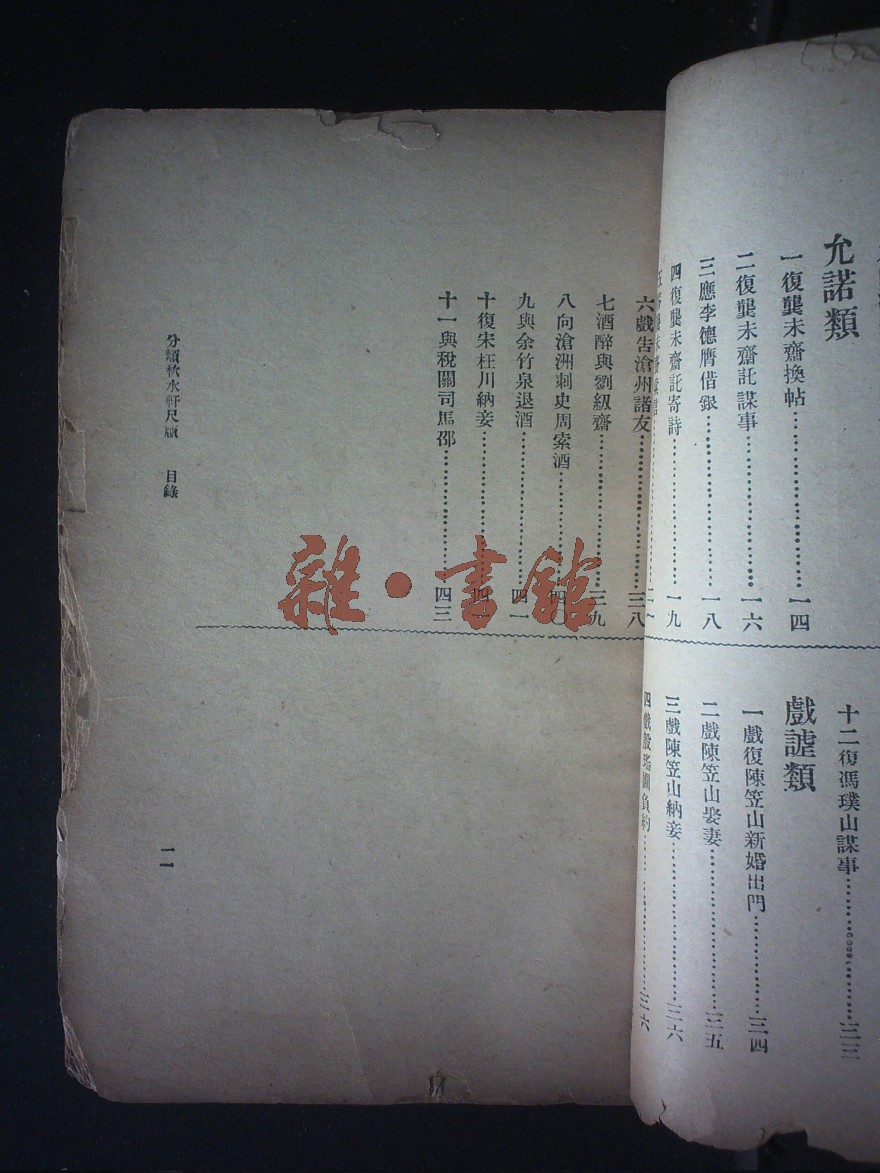 允諾類
一復龔未齋換帖⋯⋯一四
二復龔未齋託謀事⋯⋯一六
三應李德膺借銀⋯⋯一八
四復龔未齋託寄詩⋯⋯一九
十二復馮璞山謀事⋯⋯三三
戲謔類
一戲復陳笠山新婚出門⋯⋯三四
二戲陳笠山娶妻⋯⋯三五
三戲陳笠山納妾⋯⋯三六
四戲殷瑤圃負約⋯⋯三六
六戲告滄州諸友⋯⋯三八
七酒醉與劉級齋⋯⋯三九
八向滄洲刺史周索酒⋯⋯四〇
九與余竹泉退酒⋯⋯四一
十復宋枉川納妾⋯⋯四
十一與稅關司馬邵⋯⋯四三
分類秋水軒尺牘 目錄
二
雜·書館